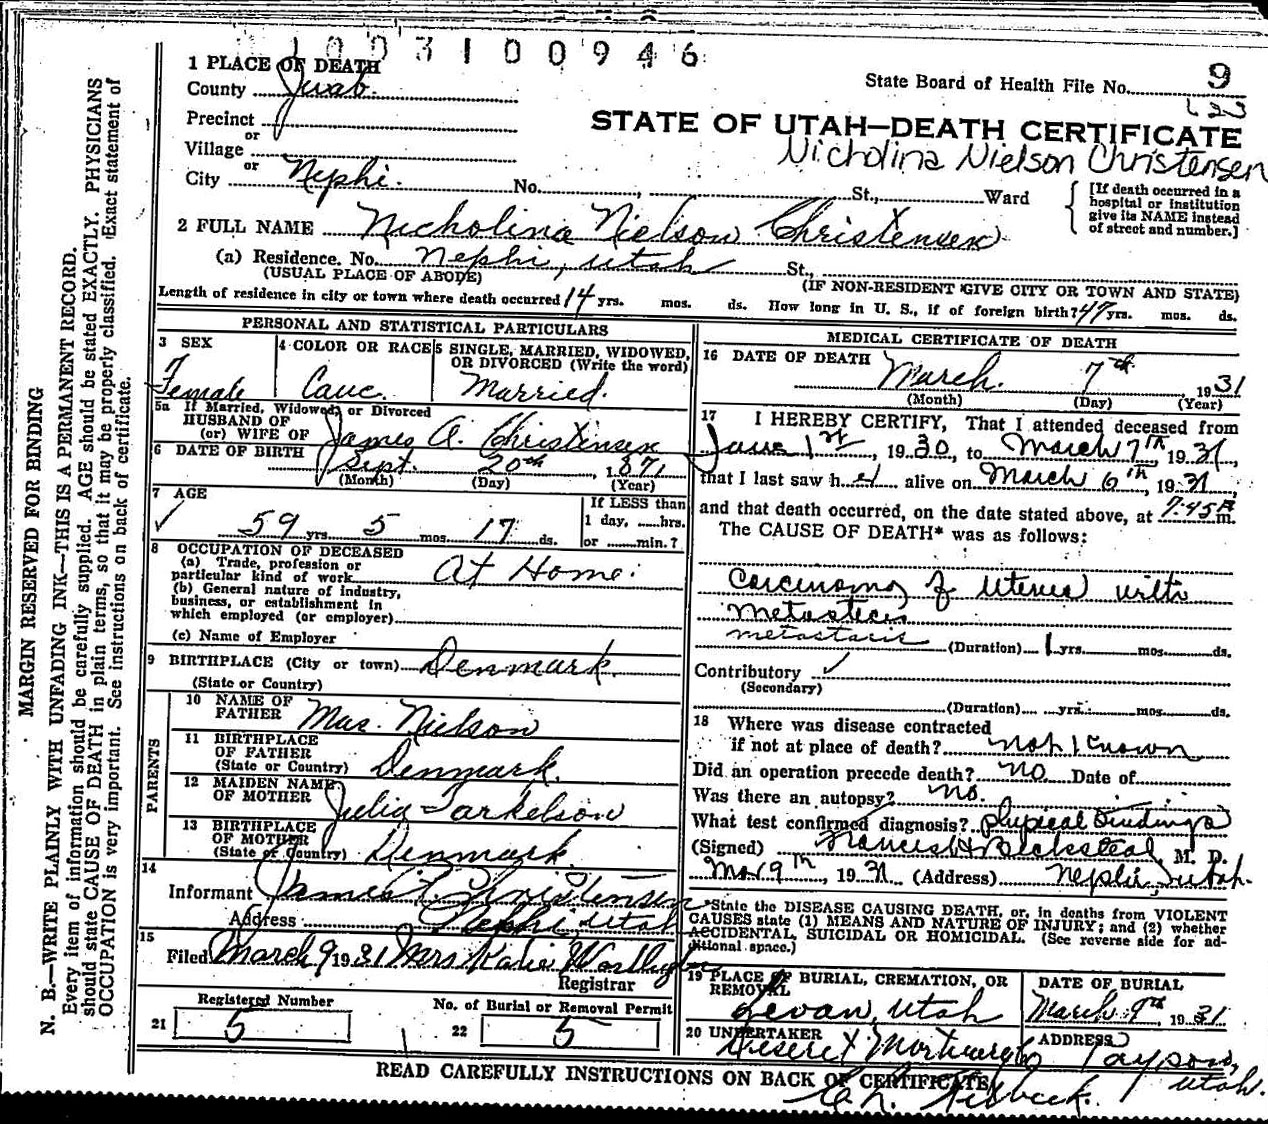 1003100946
1 PLACE OF DEATH
County Juab.
State Board of Health File No. 9
Precinct
or
Village
or
City Nephi. No. , St., Ward
STATE OF UTAH—DEATH CERTIFICATE
Nicholina Nielson Christensen
[If death occurred in a
hospital or institution
give its NAME instead
of street and number.]
2 FULL NAME Nicholina Nielson Christensen
(a) Residence. No. Nephi, Utah St.,
(USUAL PLACE OF ABODE) (IF NON-RESIDENT GIVE CITY OR TOWN AND STATE)
Length of residence in city or town where death occurred 14 yrs. mos. ds. How long in U. S., if of foreign birth? 47 yrs. mos. ds.
PERSONAL AND STATISTICAL PARTICULARS
3 SEX
Female
4 COLOR OR RACE
Cauc.
5 SINGLE, MARRIED, WIDOWED,
OR DIVORCED (Write the word)
Married.
5a If Married, Widowed, or Divorced
HUSBAND OF
(or) WIFE OF James A. Christensen
6 DATE OF BIRTH Sept. 20th, 1871
(Month) (Day) (Year)
7 AGE
59 yrs. 5 mos. 17 ds.
If LESS than
1 day, hrs.
or min.?
8 OCCUPATION OF DECEASED
(a) Trade, profession or
particular kind of work At Home.
(b) General nature of industry,
business, or establishment in
which employed (or employer)
(c) Name of Employer
9 BIRTHPLACE (City or town) Denmark.
(State or Country)
PARENTS
10 NAME OF
FATHER Mas. Nielson
11 BIRTHPLACE
OF FATHER
(State or Country) Denmark.
12 MAIDEN NAME
OF MOTHER Julia Tarkelson
13 BIRTHPLACE
OF MOTHER
(State or Country) Denmark.
14
Informant James Christensen
Address Nephi Utah
15
Filed March 9 1931 Mrs Katie
Registrar
Registered Number
21 5
No. of Burial or Removal Permit
22 5
MEDICAL CERTIFICATE OF DEATH
16 DATE OF DEATH March. 7th 1931
(Month) (Day) (Year)
17 I HEREBY CERTIFY, That I attended deceased from
June 1st, 1930, to March 7th, 1931,
that I last saw her alive on March 6th, 1931,
and that death occurred, on the date stated above, at 7:45 P.m.
The CAUSE OF DEATH* was as follows:
Carcinoma of Uterus with
Metastecis
metastasis
(Duration) 1 yrs. mos. ds.
Contributory ✓
(Secondary)
(Duration) yrs. mos. ds.
18 Where was disease contracted
if not at place of death? not known
Did an operation precede death? No Date of
Was there an autopsy? No.
What test confirmed diagnosis? physical findings
(Signed) M. D.
Mar 9th, 1931 (Address) Nephi, Utah.
*State the DISEASE CAUSING DEATH, or, in deaths from VIOLENT
CAUSES state (1) MEANS AND NATURE OF INJURY; and (2) whether
ACCIDENTAL, SUICIDAL OR HOMICIDAL. (See reverse side for ad-
ditional space.)
19 PLACE OF BURIAL, CREMATION, OR
REMOVAL
Levan, Utah
DATE OF BURIAL
March 9th, 1931
20 UNDERTAKER
Deseret Mortuary Co
ADDRESS
Payson,
Utah.
READ CAREFULLY INSTRUCTIONS ON BACK OF CERTIFICATE
MARGIN RESERVED FOR BINDING
N. B.—WRITE PLAINLY WITH UNFADING INK—THIS IS A PERMANENT RECORD.
Every item of information should be carefully supplied. AGE should be stated EXACTLY. PHYSICIANS
should state CAUSE OF DEATH in plain terms, so that it may be properly classified. Exact statement of
OCCUPATION is very important. See instructions on back of certificate.